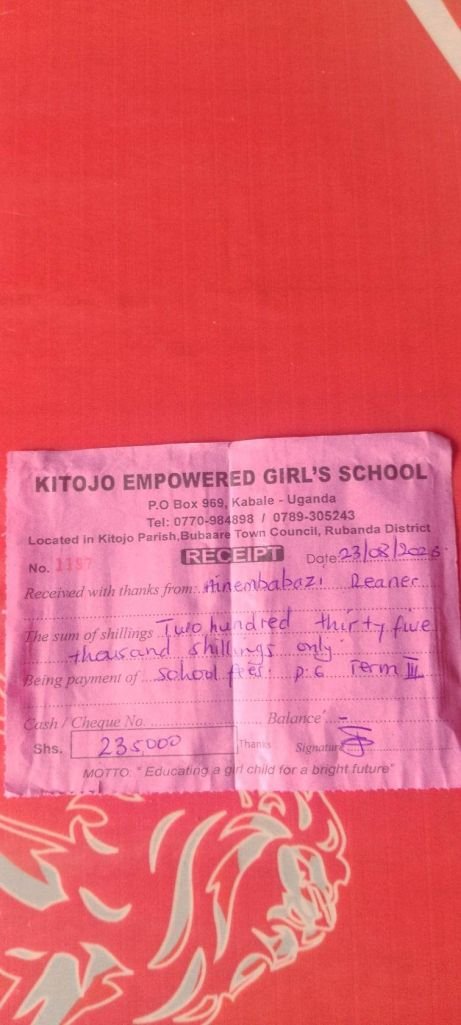 KITOJO EMPOWERED GIRL'S SCHOOL
P.O Box 969, Kabale - Uganda
Tel: 0770-984898 / 0789-305243
Located in Kitojo Parish,Bubaare Town Council, Rubanda District
No. 1197 RECEIPT Date 23/08/2023
Received with thanks from: Ainembabazi Deaner
The sum of shillings Two hundred thirty five
thousand shillings only.
Being payment of school fees. P.6 Term III
Cash / Cheque No. Balance -
Shs. 235000 Thanks Signature
MOTTO: " Educating a girl child for a bright future"